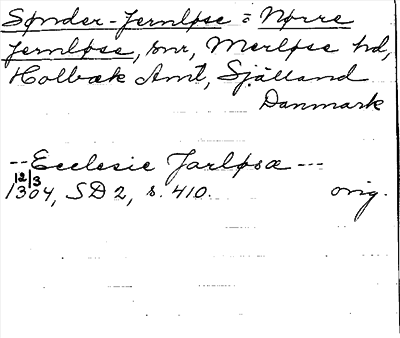 Sønder-Jernløse = Nørre
Jernløse, snr, Merløse hd,
Holbæk Amt, Själland
Danmark
--Ecclesie Jarløsæ---
12/3
1304, SD 2, s. 410. orig.